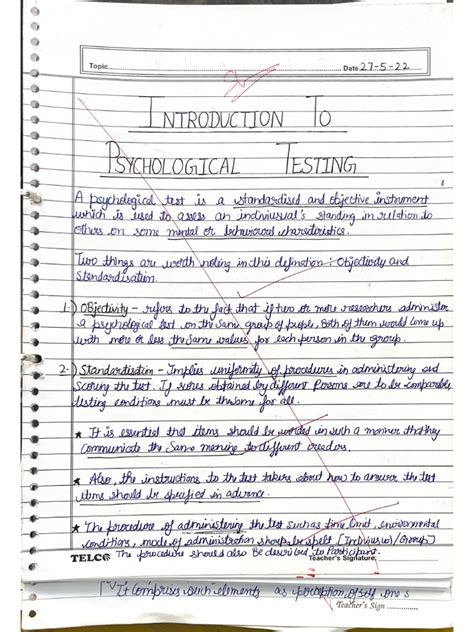 Topic Date 27-5-22
INTRODUCTION TO
PSYCHOLOGICAL TESTING
A psychological test is a standardised and objective instrument
which is used to assess an indiviusual's standing in relation to
others on some mental or behavioural characteristics.
Two things are worth noting in this definition : Objectivity and
Standardisation.
1.) Objectivity - refers to the fact that if two or more researchers administer
a psychological test on the same group of people, Both of them would come up
with more or less the same values for each person in the group.
2.) Standardisation - Implies uniformity of procedures in administering and
scoring the test. If scores obtained by different Persons are to be comparable
testing conditions must be the same for all.
★ It is essential that items should be worded in such a manner that they
communicate the Same meaning to different readers.
★ Also, the instructions to the test takers about how to answer the test
items should be specified in advance.
★ The procedure of administering the test such as time limit, environmental
conditions, mode of administration should be spelt (Individual/Group)
The procedure should also Be described to Participant.
TELCO Teacher's Signature
It comprises such elements as perception of self one s
Teacher's Sign